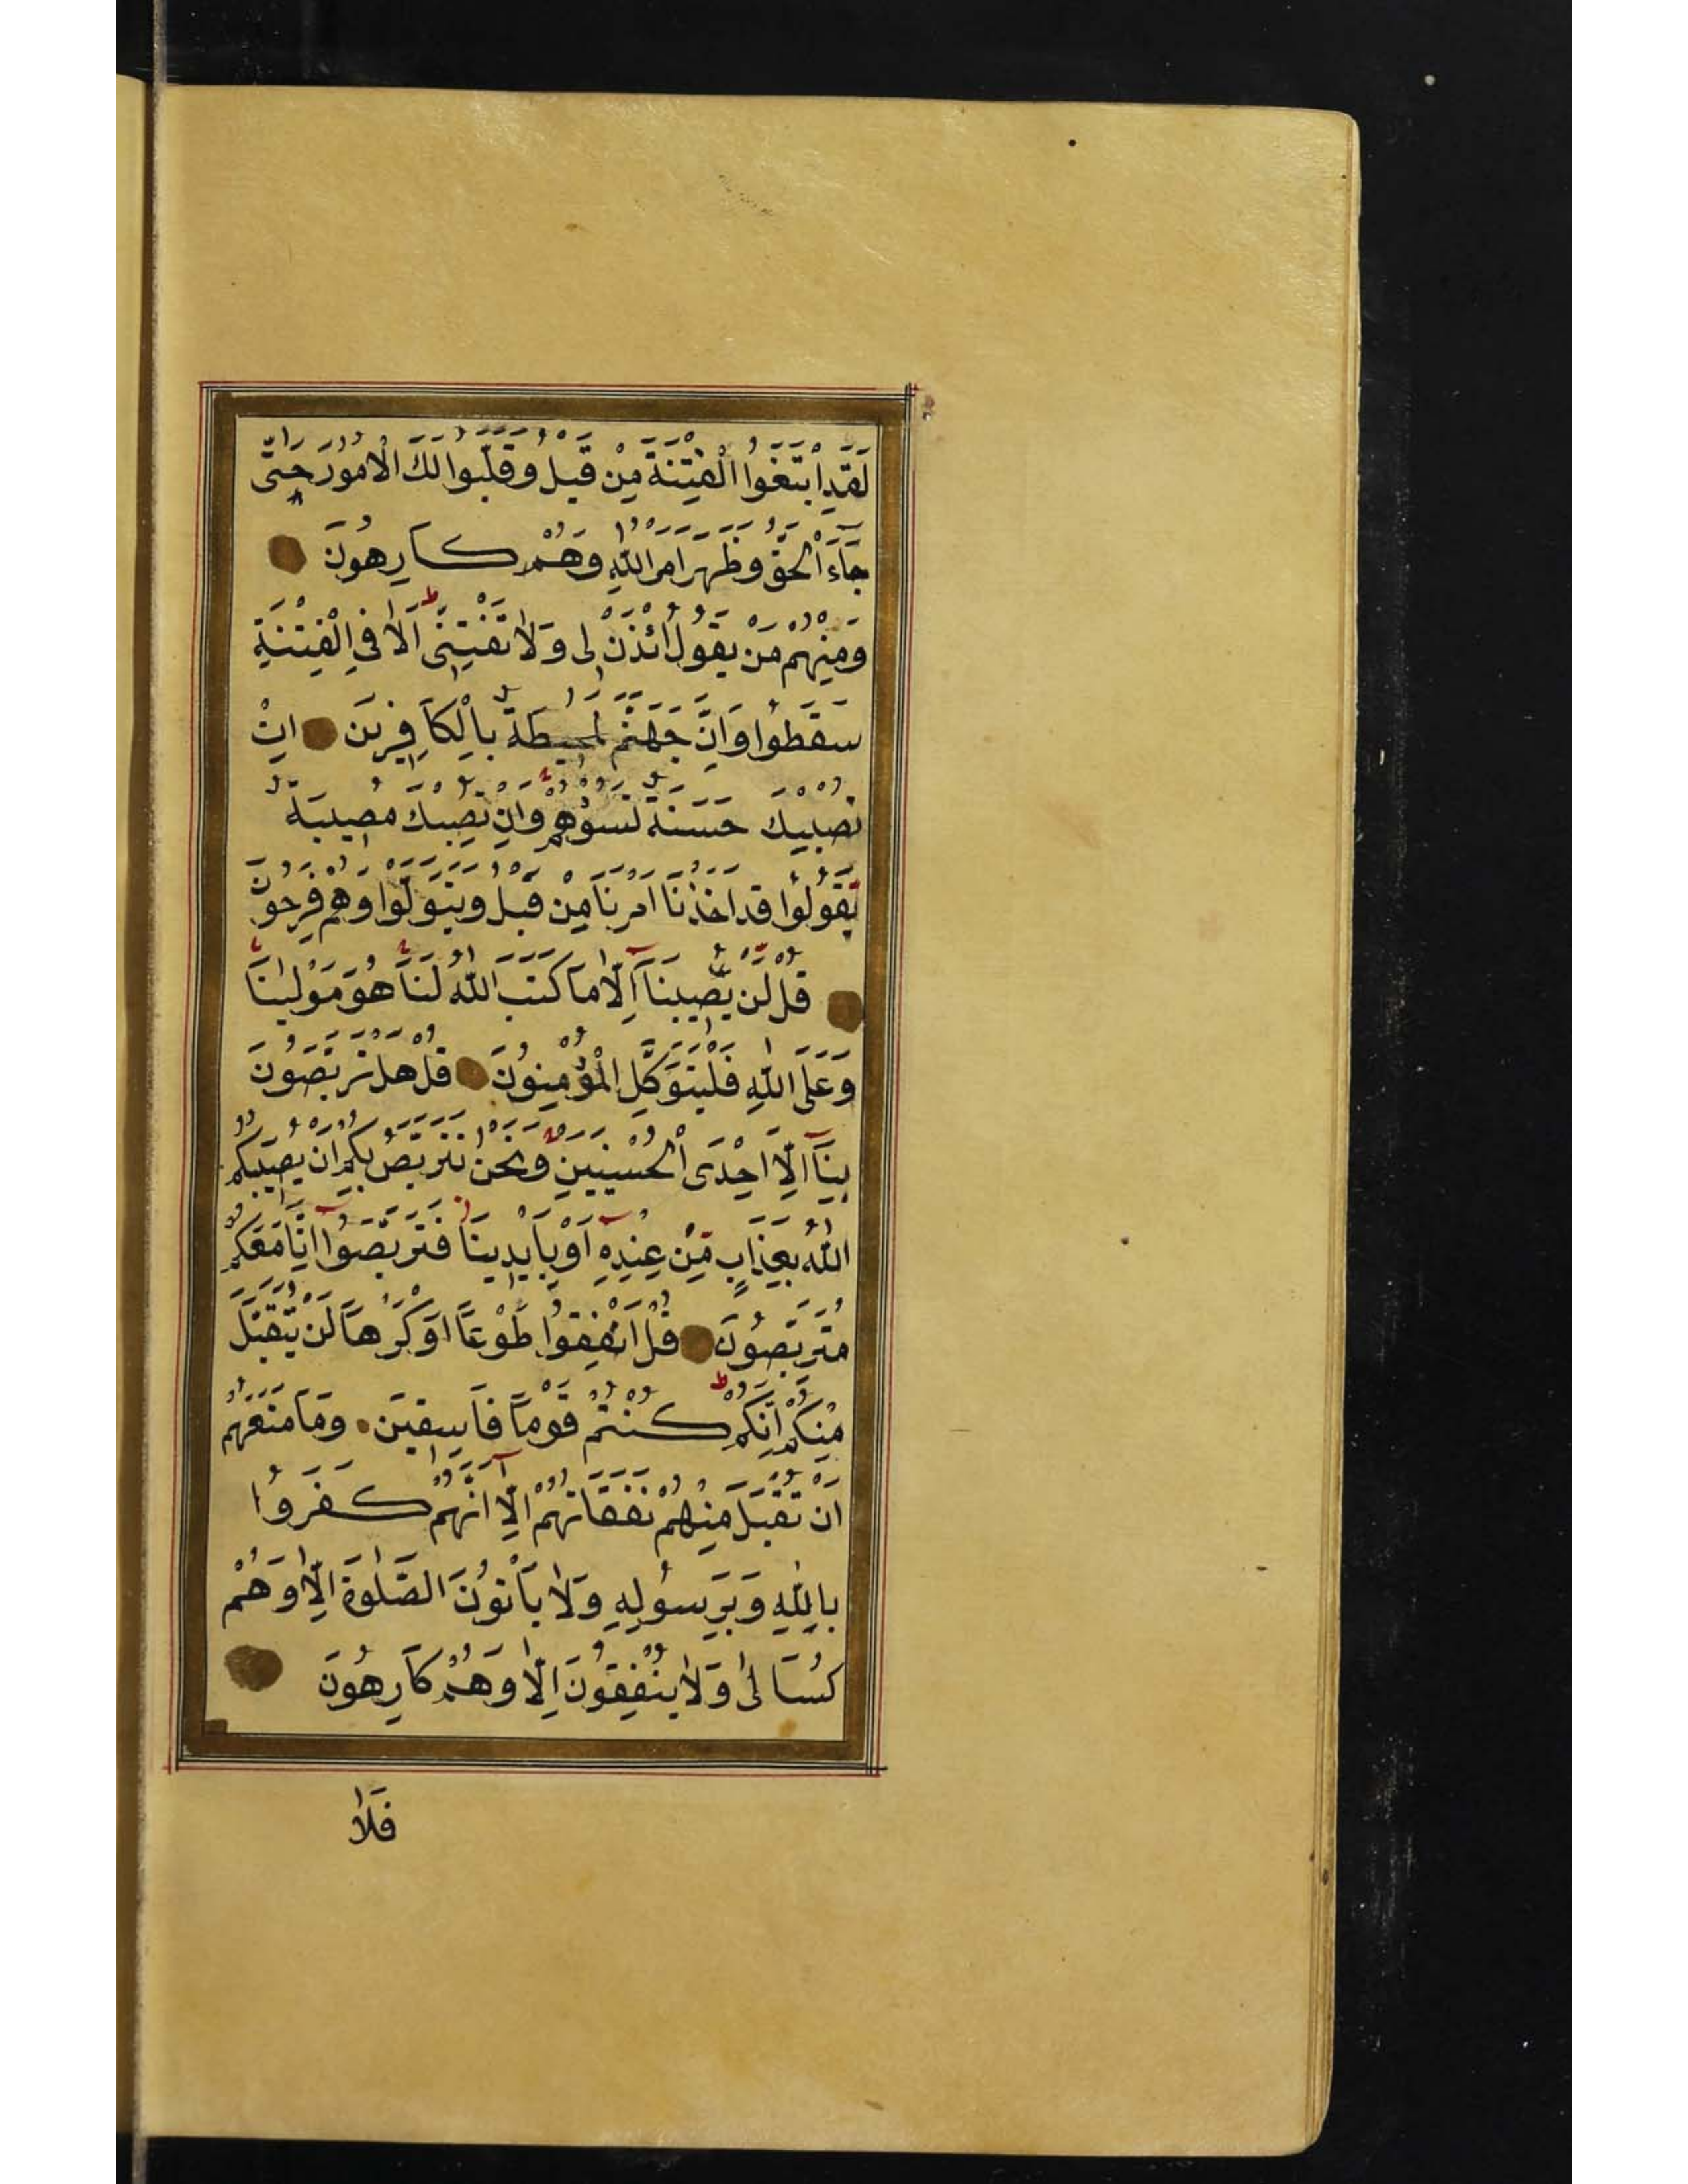 لَقَدِ ابْتَغَوُا الْفِتْنَةَ مِنْ قَبْلُ وَقَلَّبُوا لَكَ الْاُمُورَ حَتّٰى
جَآءَ الْحَقُّ وَظَهَرَ اَمْرُ اللّٰهِ وَهُمْ كَارِهُونَ
وَمِنْهُمْ مَنْ يَقُولُ ائْذَنْ لِى وَلَا تَفْتِنِّى اَلَا فِى الْفِتْنَةِ
سَقَطُوا وَاِنَّ جَهَنَّمَ لَمُحِيطَةٌ بِالْكَافِرِينَ اِنْ
تُصِبْكَ حَسَنَةٌ تَسُؤْهُمْ وَاِنْ تُصِبْكَ مُصِيبَةٌ
يَقُولُوا قَدْ اَخَذْنَا اَمْرَنَا مِنْ قَبْلُ وَيَتَوَلَّوْا وَهُمْ فَرِحُونَ
قُلْ لَنْ يُصِيبَنَآ اِلَّا مَا كَتَبَ اللّٰهُ لَنَا هُوَ مَوْلٰينَا
وَعَلَى اللّٰهِ فَلْيَتَوَكَّلِ الْمُؤْمِنُونَ قُلْ هَلْ تَرَبَّصُونَ
بِنَآ اِلَّآ اِحْدَى الْحُسْنَيَيْنِ وَنَحْنُ نَتَرَبَّصُ بِكُمْ اَنْ يُصِيبَكُمُ
اللّٰهُ بِعَذَابٍ مِنْ عِنْدِهِ اَوْ بِاَيْدِينَا فَتَرَبَّصُوا اِنَّا مَعَكُمْ
مُتَرَبِّصُونَ قُلْ اَنْفِقُوا طَوْعًا اَوْ كَرْهًا لَنْ يُتَقَبَّلَ
مِنْكُمْ اِنَّكُمْ كُنْتُمْ قَوْمًا فَاسِقِينَ وَمَا مَنَعَهُمْ
اَنْ تُقْبَلَ مِنْهُمْ نَفَقَاتُهُمْ اِلَّآ اَنَّهُمْ كَفَرُوا
بِاللّٰهِ وَبِرَسُولِهِ وَلَا يَاْتُونَ الصَّلٰوةَ اِلَّا وَهُمْ
كُسَالٰى وَلَا يُنْفِقُونَ اِلَّا وَهُمْ كَارِهُونَ
فَلَا